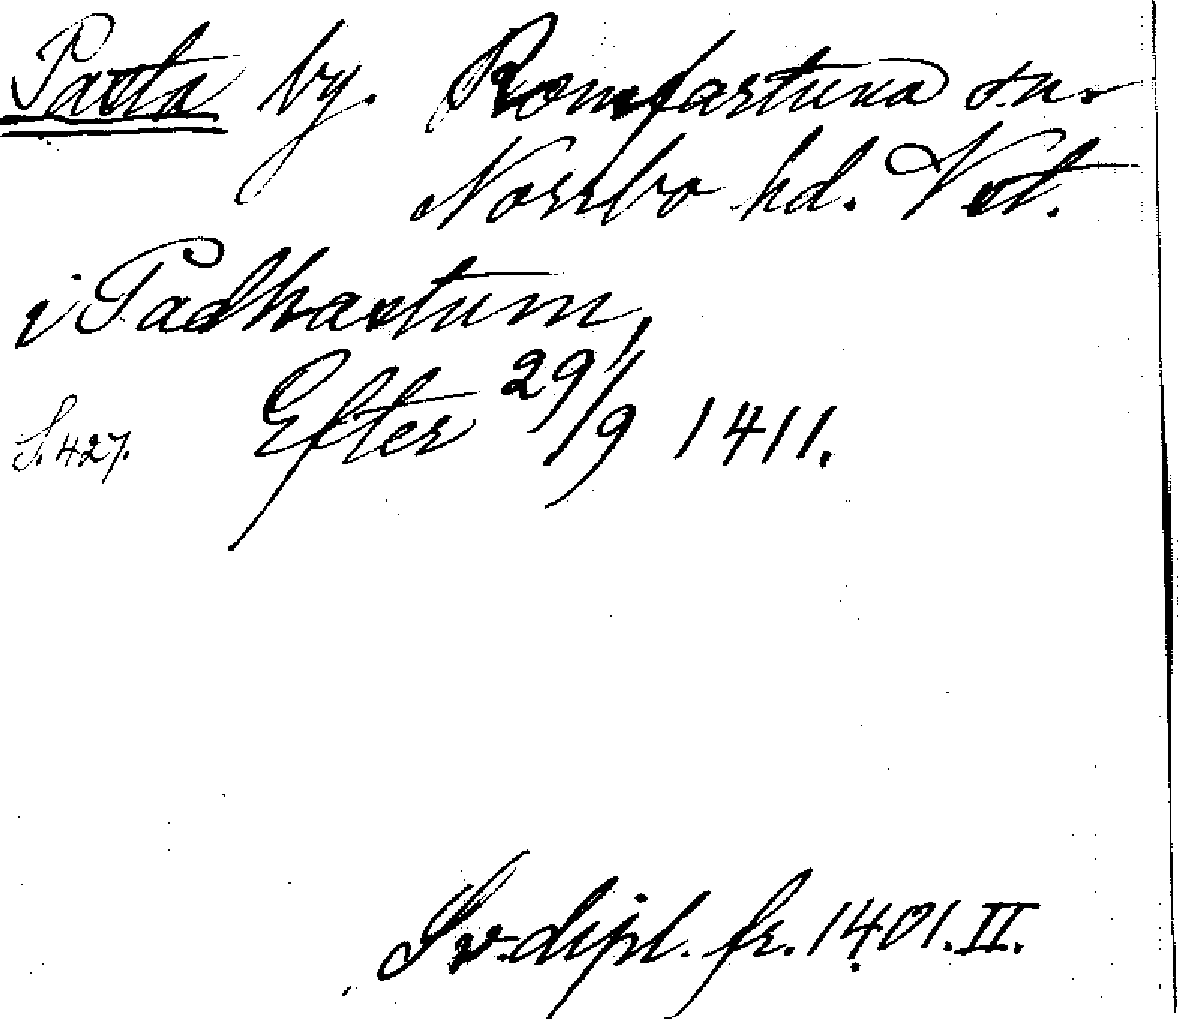 Pasta by. Romfartuna sn.
Norrbo hd. Vst.
i Padhastum,
Efter 29/9 1411.
S. 427.
Sv. dipl. fr. 1401. II.